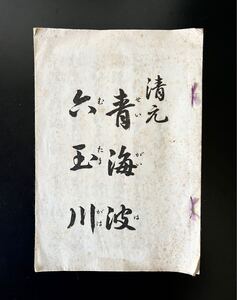 清元
青海波
せいがいは
六玉川
むたまがは